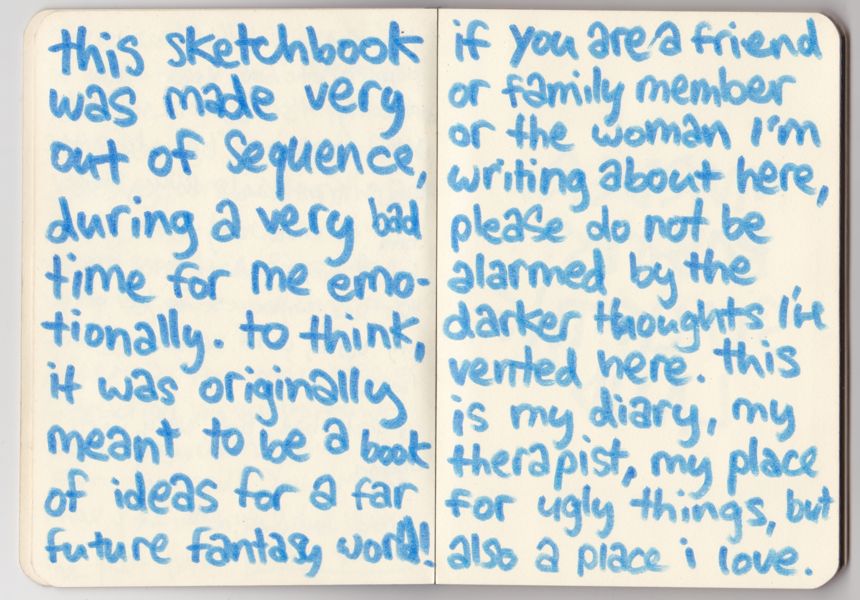 this sketchbook
was made very
out of sequence,
during a very bad
time for me emo-
tionally. to think,
it was originally
meant to be a book
of ideas for a far
future fantasy world!
if you are a friend
or family member
or the woman I'm
writing about here,
please do not be
alarmed by the
darker thoughts I've
vented here. this
is my diary, my
therapist, my place
for ugly things, but
also a place i love.